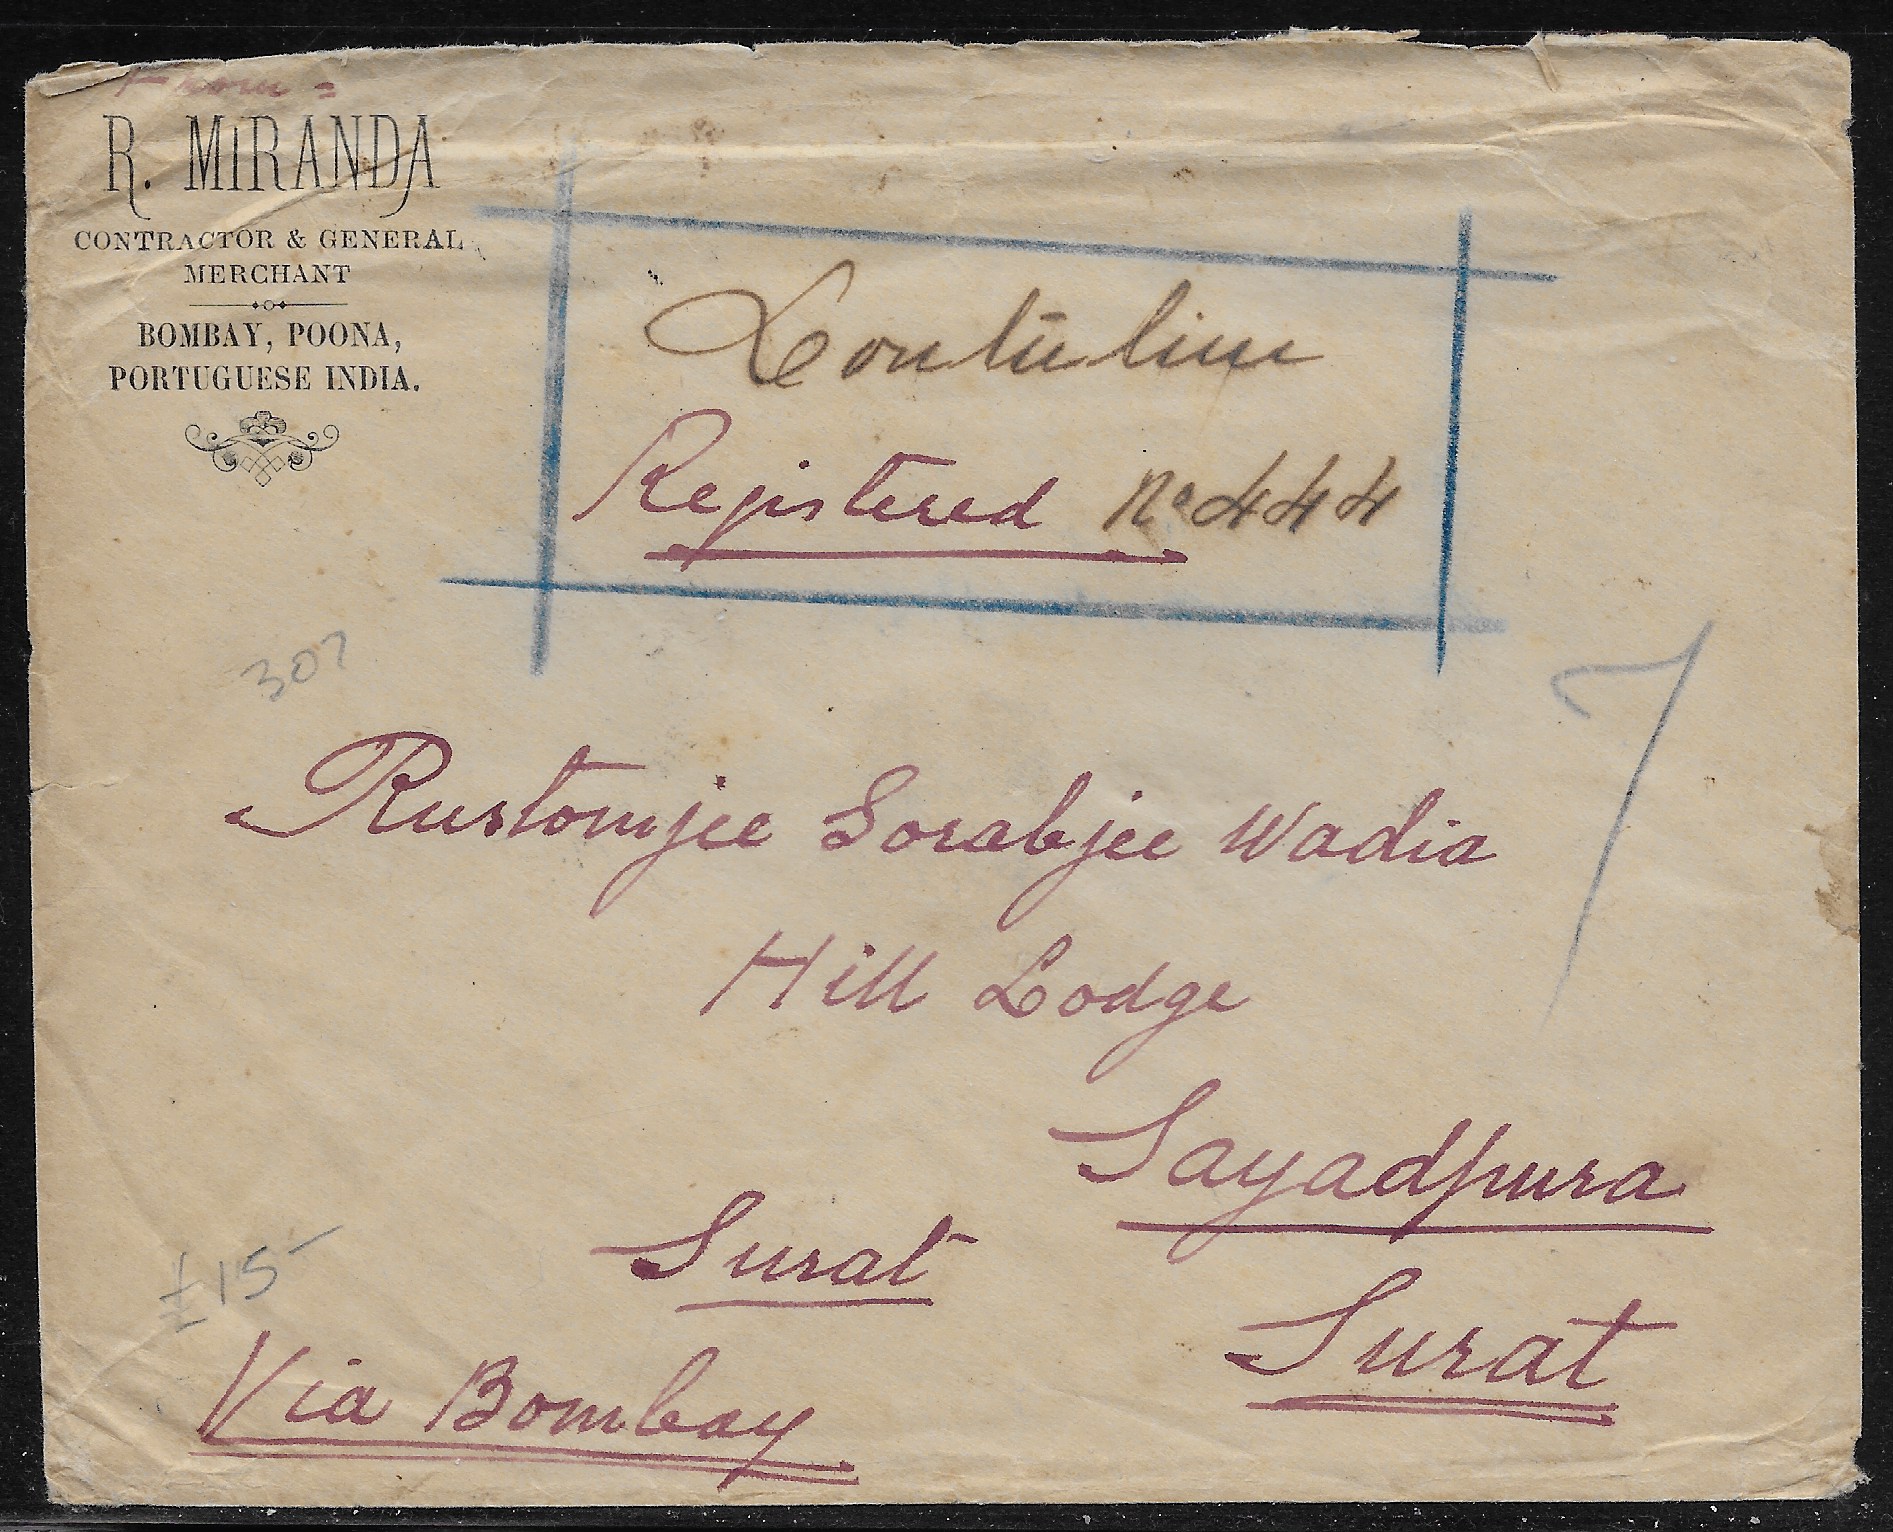 From =
R. MIRANDA
CONTRACTOR & GENERAL
MERCHANT
BOMBAY, POONA,
PORTUGUESE INDIA.
Registered No 444
307
7
Rustomjee Sorabjee Wadia
Hill Lodge
Sayadpura
Surat
Surat
£15-
Via Bombay